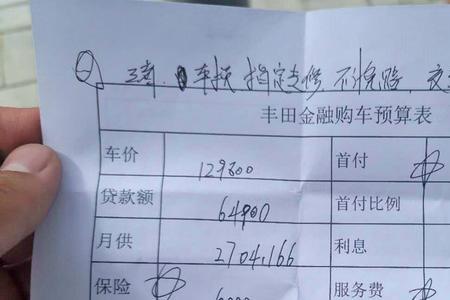 三者. 车损 指定专修 不计免赔
丰田金融购车预算表
车价 129800 首付
贷款额 64900 首付比例
月供 2704.166 利息
保险 服务费